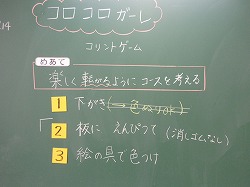 コロコロガーレ
コリントゲーム
めあて
楽しく転がるようにコースを考える
1 下がき(→色ぬりOK)
2 板に えんぴつで (消しゴムなし)
3 絵の具で色つけ